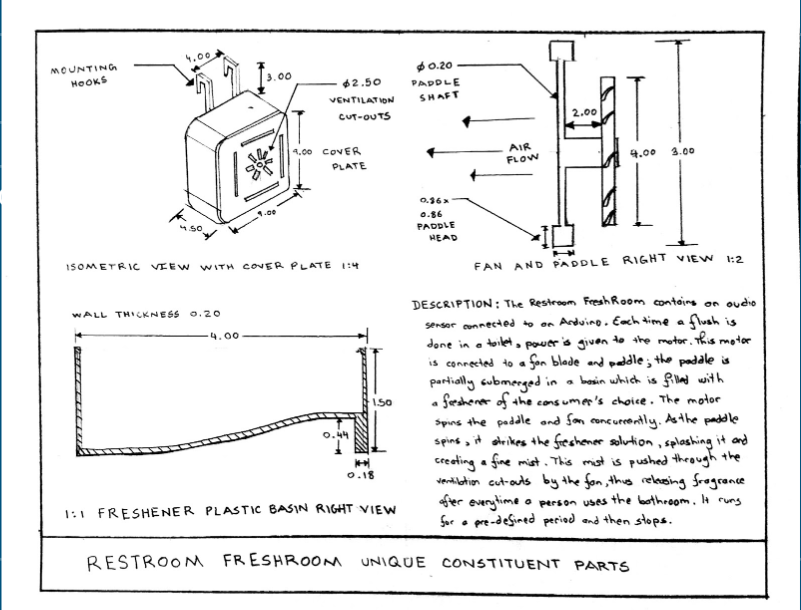 MOUNTING
HOOKS
4.00
3.00
ϕ2.50
VENTILATION
CUT-OUTS
9.00 COVER
PLATE
4.50
9.00
ISOMETRIC VIEW WITH COVER PLATE 1:4
ϕ0.20
PADDLE
SHAFT
2.00
AIR
FLOW
0.86x
0.86
PADDLE
HEAD
FAN AND PADDLE RIGHT VIEW 1:2
WALL THICKNESS 0.20
4.00
1.50
0.44
0.18
1:1 FRESHENER PLASTIC BASIN RIGHT VIEW
DESCRIPTION: The Restroom FreshRoom contains an audio
sensor connected to an Arduino. Each time a flush is
done in a toilet, power is given to the motor. This motor
is connected to a fan blade and paddle; the paddle is
partially submerged in a basin which is filled with
a freshener of the consumer's choice. The motor
spins the paddle and fan concurrently. As the paddle
spins, it strikes the freshener solution, splashing it and
creating a fine mist. This mist is pushed through the
ventilation cut-outs by the fan, thus releasing fragrance
after everytime a person uses the bathroom. It runs
for a pre-defined period and then stops.
RESTROOM FRESHROOM UNIQUE CONSTITUENT PARTS